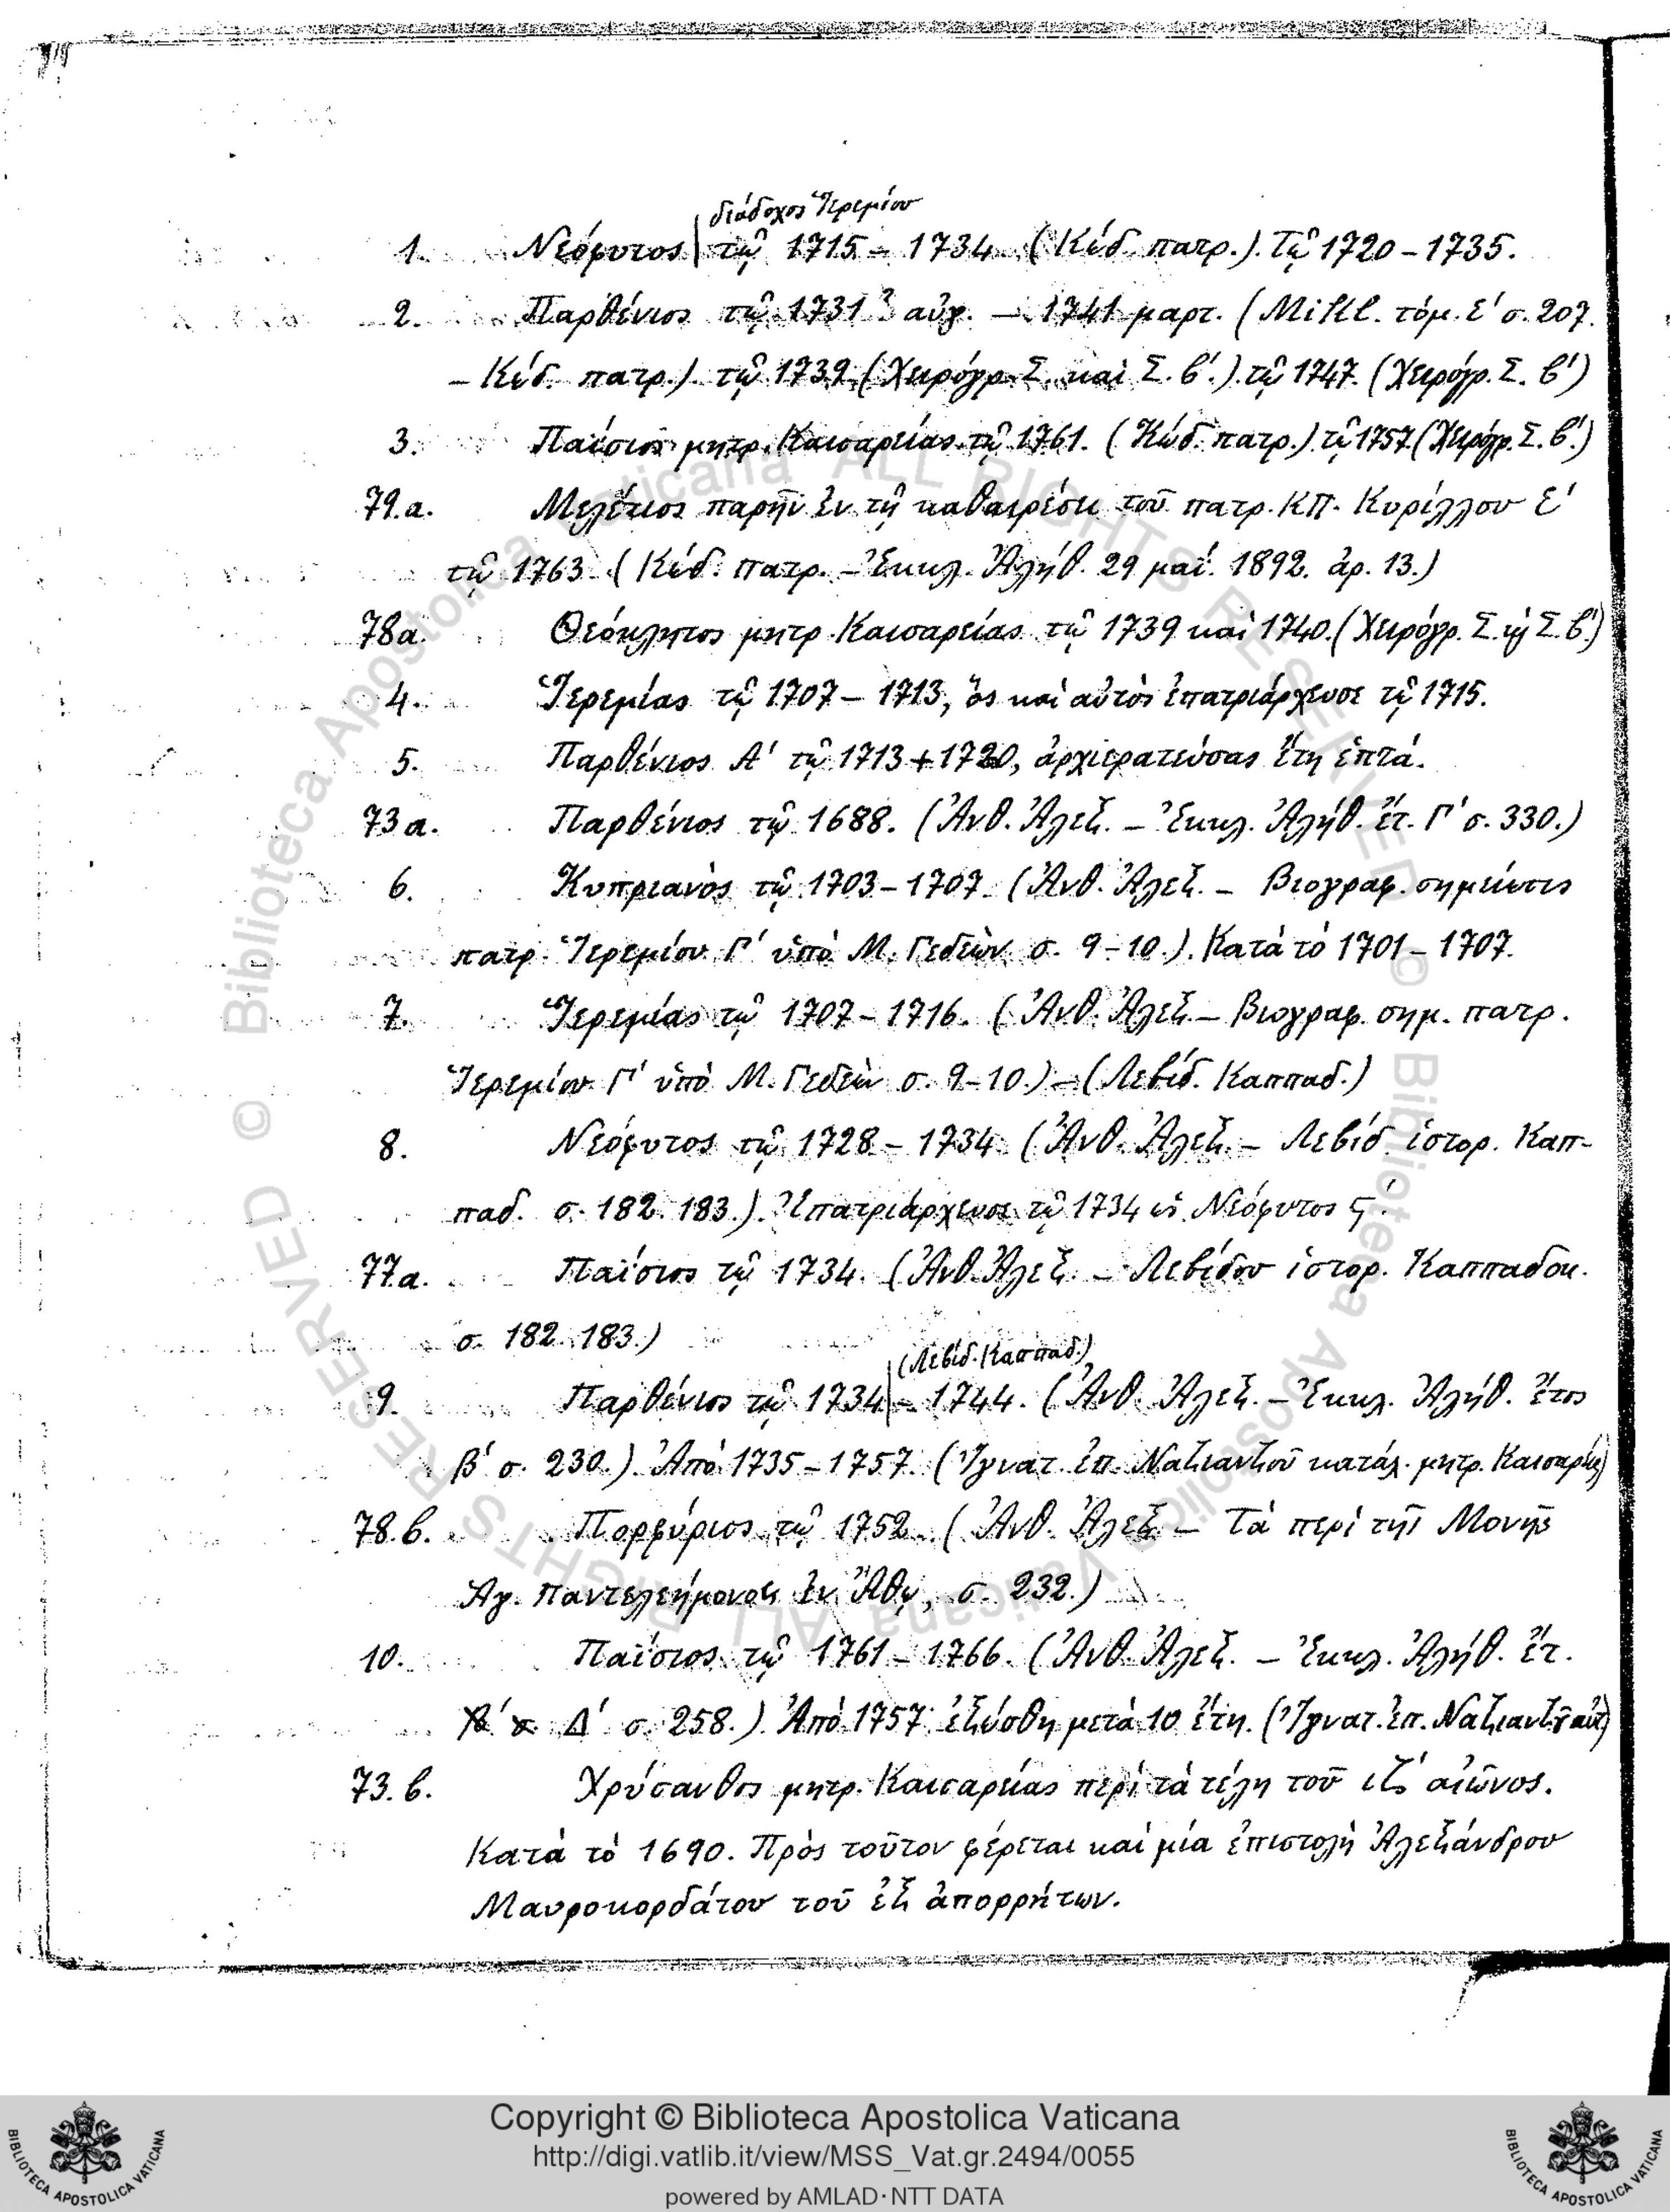 διάδοχος Ἱερεμίου
1. Νεόφυτος τῷ 1715 – 1734 (Κώδ. πατρ.). Τῷ 1720 – 1735.
2. Παρθένιος τῷ 1731 3 αὐγ. – 1741 μαρτ. (Mikl. τόμ. Ε' σ. 207.
– Κώδ. πατρ.). τῷ 1739 (Χειρόγρ. Σ. καὶ Σ. β'.). τῷ 1747. (Χειρόγρ. Σ. β')
3. Παΐσιος μητρ. Καισαρείας τῷ 1761. (Κώδ. πατρ.) τῷ 1757. (Χειρόγρ. Σ. β'.)
79.a. Μελέτιος παρῆν ἐν τῇ καθαιρέσει τοῦ πατρ. ΚΠ. Κυρίλλου Ε'
τῷ 1763. (Κώδ. πατρ. – Ἐκκλ. Ἀλήθ. 29 μαΐ. 1892. ἀρ. 13.)
78a. Θεόκλητος μητρ. Καισαρείας τῷ 1739 καὶ 1740. (Χειρόγρ. Σ. ϗ Σ. β'.)
4. Ἱερεμίας τῷ 1707 – 1713, ὃς καὶ αὐτὸς ἐπατριάρχευσε τῷ 1715.
5. Παρθένιος Α' τῷ 1713 + 1720, ἀρχιερατεύσας ἔτη ἑπτά.
73a. Παρθένιος τῷ 1688. (Ἀνθ. Ἀλεξ. – Ἐκκλ. Ἀλήθ. ἔτ. Γ' σ. 330.)
6. Κυπριανὸς τῷ 1703 – 1707 (Ἀνθ. Ἀλεξ. – Βιογραφ. σημείωσις
πατρ. Ἱερεμίου Γ' ὑπὸ Μ. Γεδεὼν σ. 9 – 10.). Κατὰ τὸ 1701 – 1707.
7. Ἱερεμίας τῷ 1707 – 1716. (Ἀνθ. Ἀλεξ. – Βιογραφ. σημ. πατρ.
Ἱερεμίου Γ' ὑπὸ Μ. Γεδεὼν σ. 9–10.) – (Λεβίδ. Καππαδ.)
8. Νεόφυτος τῷ 1728 – 1734 (Ἀνθ. Ἀλεξ. – Λεβίδ. ἱστορ. Καπ-
παδ. σ. 182. 183.). Ἐπατριάρχευσε τῷ 1734 ὡς Νεόφυτος ϛ'.
77.a. Παΐσιος τῷ 1734. (Ἀνθ. Ἀλεξ. – Λεβίδου ἱστορ. Καππαδοκ.
σ. 182. 183.)
(Λεβίδ. Καππαδ.)
9. Παρθένιος τῷ 1734 – 1744. (Ἀνθ. Ἀλεξ. – Ἐκκλ. Ἀλήθ. ἔτος
β' σ. 230.). Ἀπὸ 1735 – 1757. (Ἰγνατ. ἐπ. Ναζιανζοῦ κατάλ. μητρ. Καισαρείας)
78.b. Πορφύριος τῷ 1752. (Ἀνθ. Ἀλεξ. – Τὰ περὶ τῆς Μονῆς
Ἁγ. Παντελεήμονος ἐν Ἄθῳ, σ. 232.)
10. Παΐσιος τῷ 1761 – 1766. (Ἀνθ. Ἀλεξ. – Ἐκκλ. Ἀλήθ. ἔτ.
Δ' σ. 258.). Ἀπὸ 1757 ἐξώσθη μετὰ 10 ἔτη. (Ἰγνατ. ἐπ. Ναζιανζοῦ αὐτ.)
73.b. Χρύσανθος μητρ. Καισαρείας περὶ τὰ τέλη τοῦ ιζ' αἰῶνος.
Κατὰ τὸ 1690. Πρὸς τοῦτον φέρεται καὶ μία ἐπιστολὴ Ἀλεξάνδρου
Μαυροκορδάτου τοῦ ἐξ ἀπορρήτων.
© Biblioteca Apostolica Vaticana ALL RIGHTS RESERVED
© Biblioteca Apostolica Vaticana ALL RIGHTS RESERVED
Copyright © Biblioteca Apostolica Vaticana
http://digi.vatlib.it/view/MSS_Vat.gr.2494/0055
powered by AMLAD·NTT DATA
BIBLIOTECA APOSTOLICA VATICANA
BIBLIOTECA APOSTOLICA VATICANA